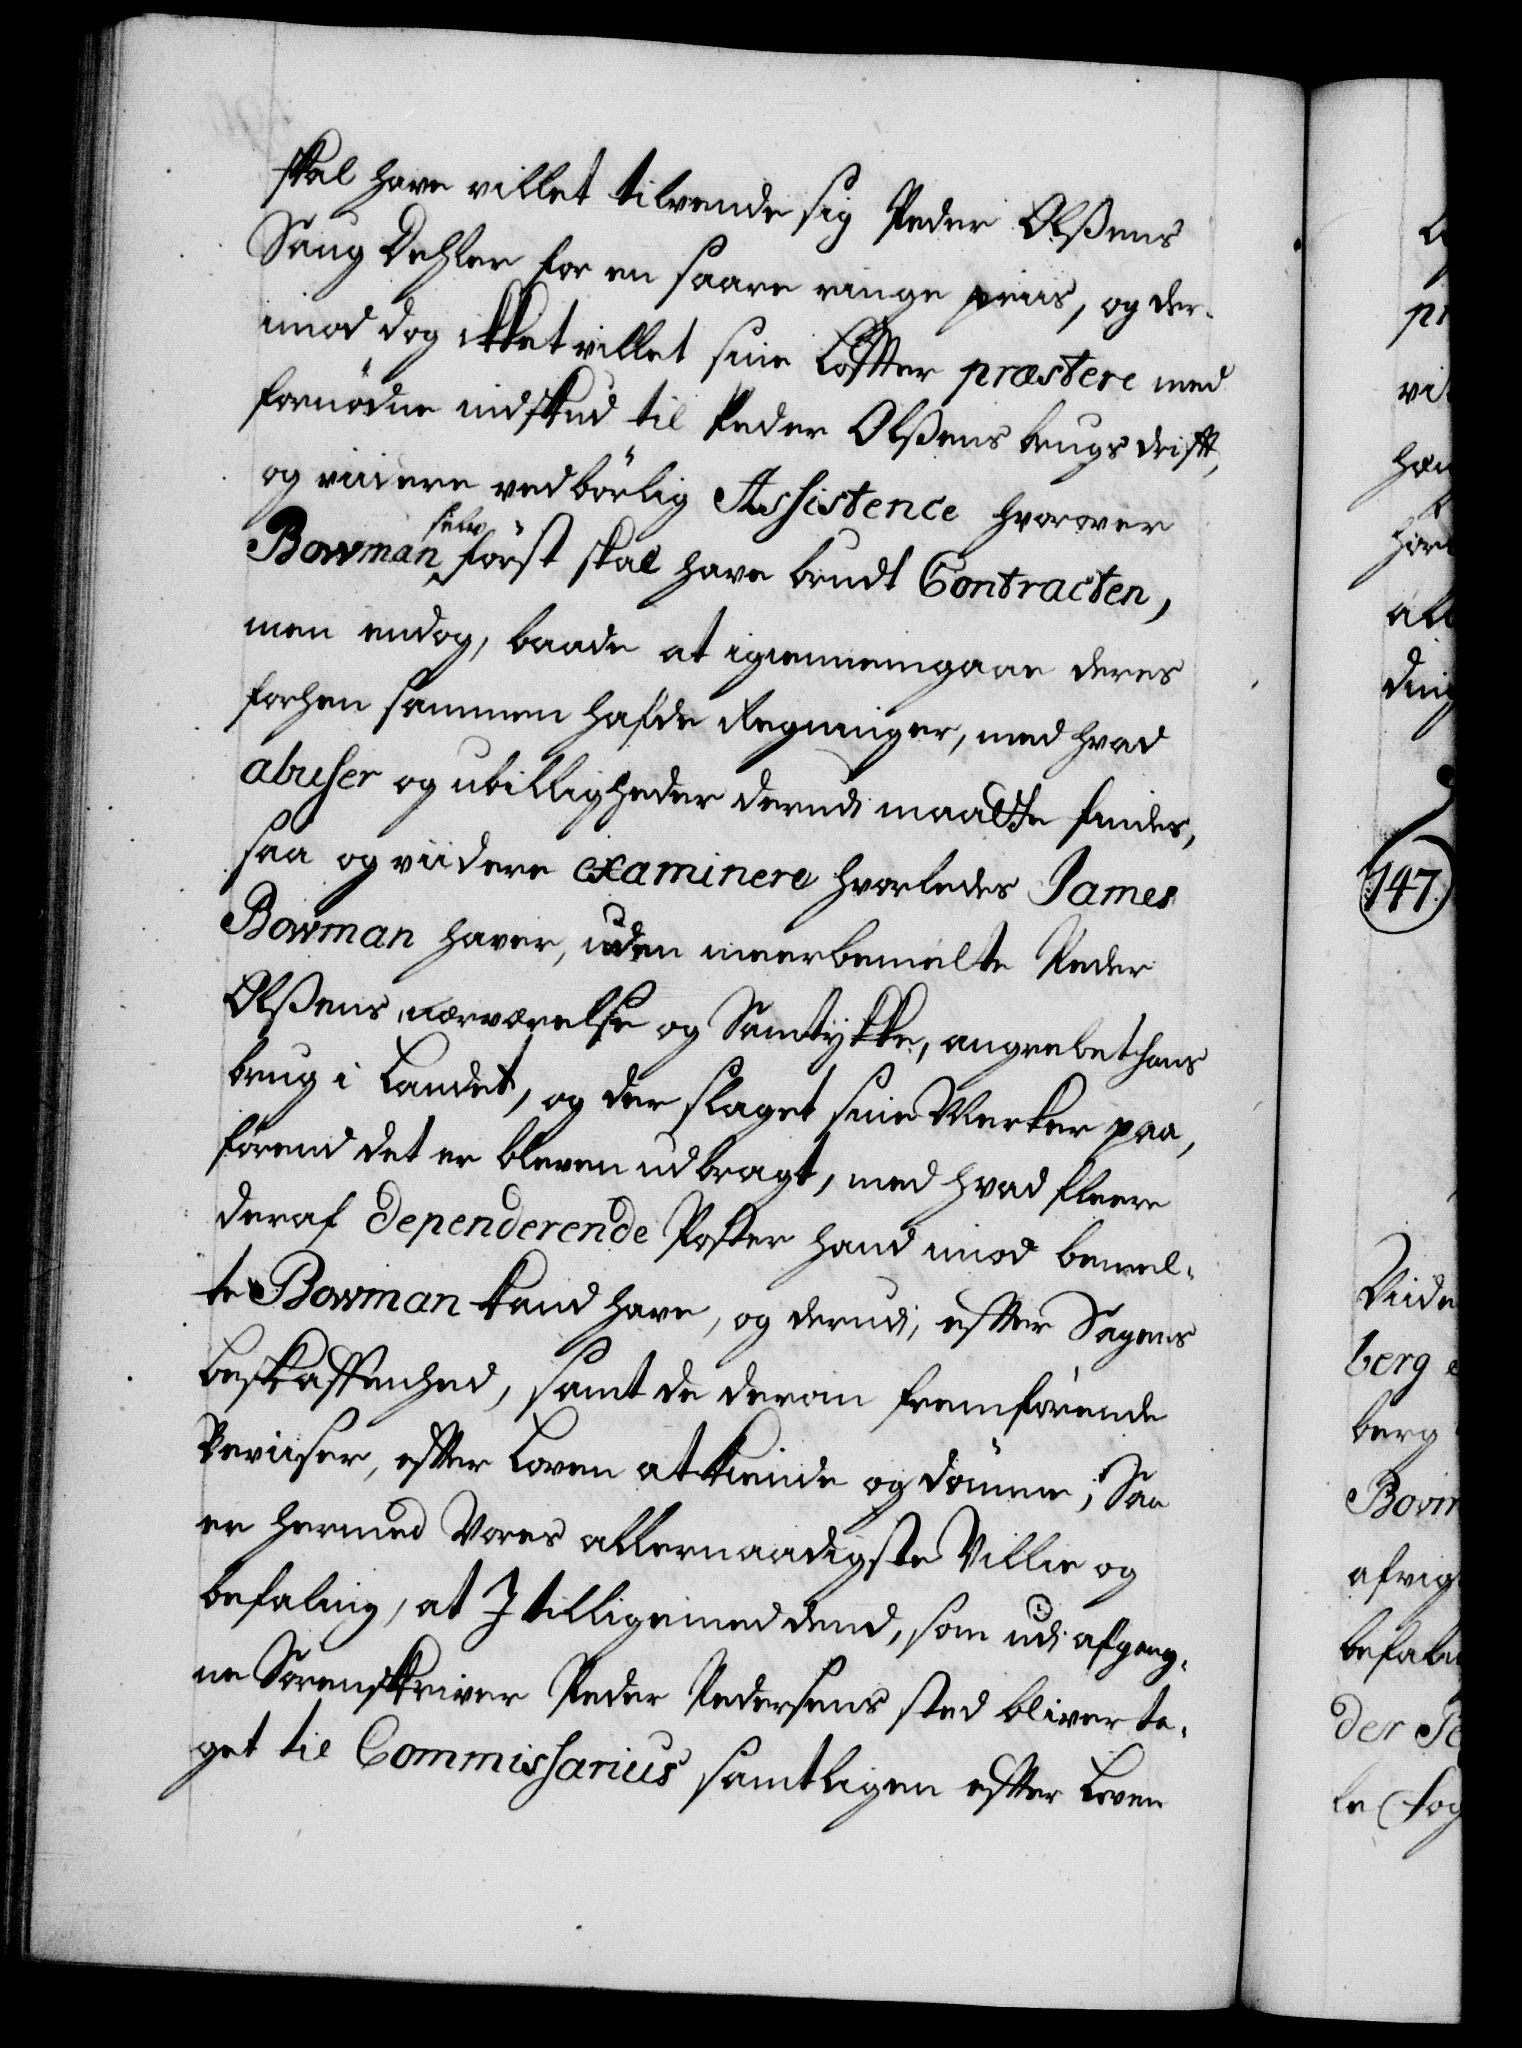 skal have villet tilvende sig Peder Olßens
Saug Dehler for en saare ringe priis, og der-
imod dog ikket villet sine Løffter præstere med
fornødne indskud til Peder Olßens brugs drifft,
og viidere vedbörlig Assistence hvorover
Bowman selv först skal have brudt Contracten,
men endog, baade at igiennemgaae deres
forhen sammen hafde Regninger, med hvad
abuser og ubilligheder derudi maatte findes,
saa og viidere examinere hvorledes James
Bowman haver, uden meerbemelte Peder
Olßens nærværelse og Samtykke, angrebet hans
brug i Landet, og der slaget sine Merker paa,
förend det er bleven udbragt, med hvad fleere
deraf dependerende Poster hand imod bemel-
te Bowman kand have, og derudi, efter Sagens
beskaffenhed, samt de derom fremförende
Beviiser, efter Loven at kiende og dömme; Saa
er hermed Vores allernaadigste Villie og
befaling, at I tilligemed dend, som udi afgang-
ne Sorenskriver Peder Pedersens sted bliver ta-
get til Commissarius samtligen efter Loven
147.
Viide
berg
berg
Bovm
afvig
befali
der Pe
le fog